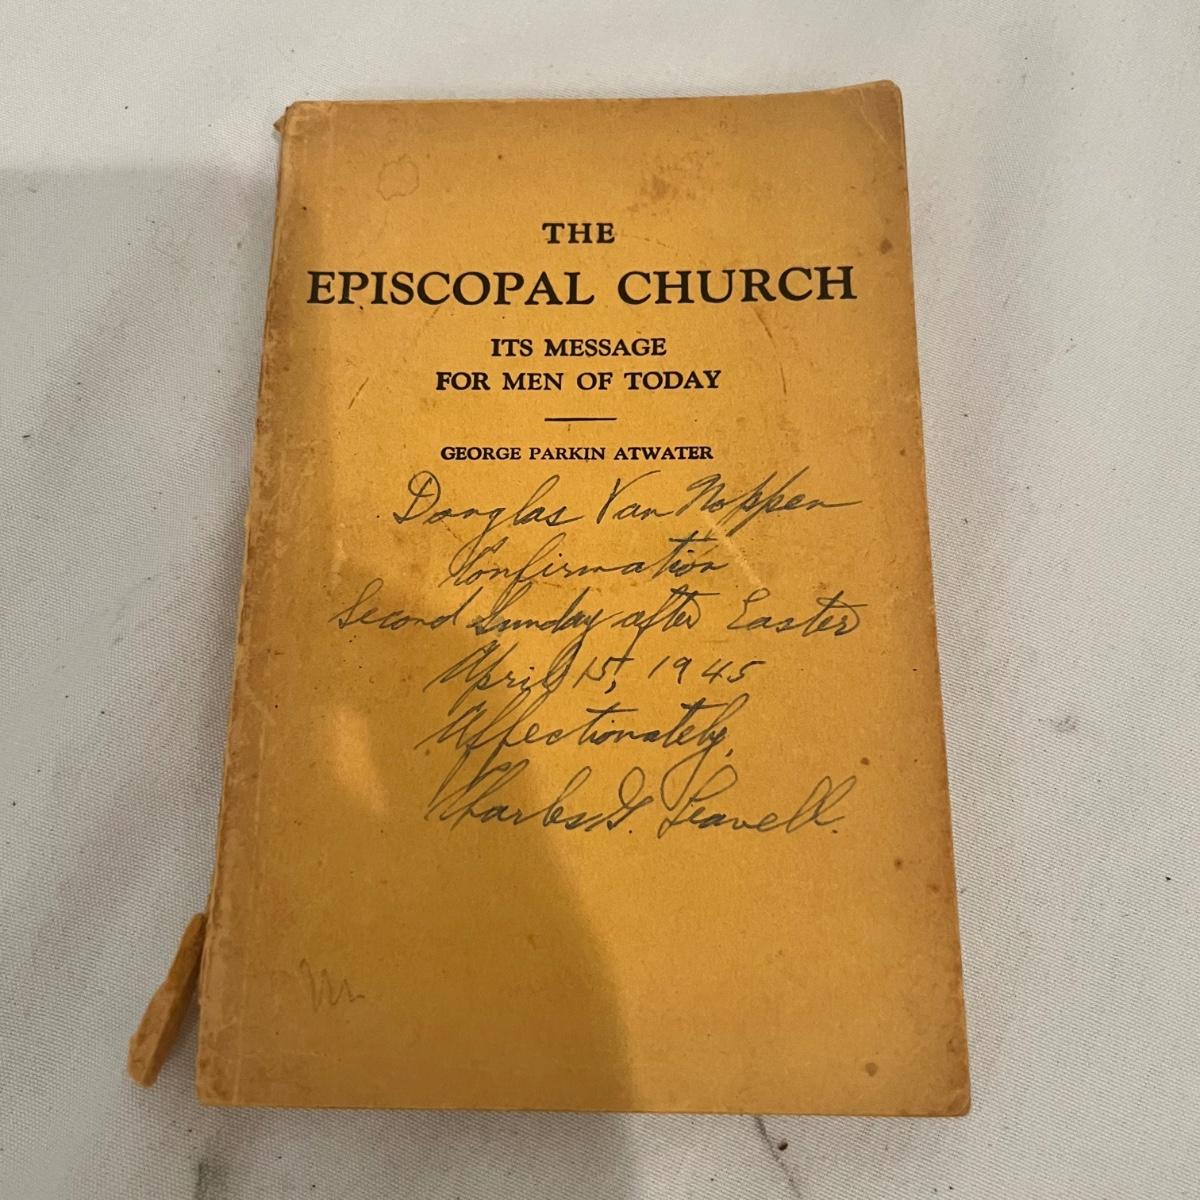 THE
EPISCOPAL CHURCH
ITS MESSAGE
FOR MEN OF TODAY
GEORGE PARKIN ATWATER
Douglas Van Noppen
Confirmation
Second Sunday after Easter
April 15, 1945
Affectionately,
Charles G. Leavell.